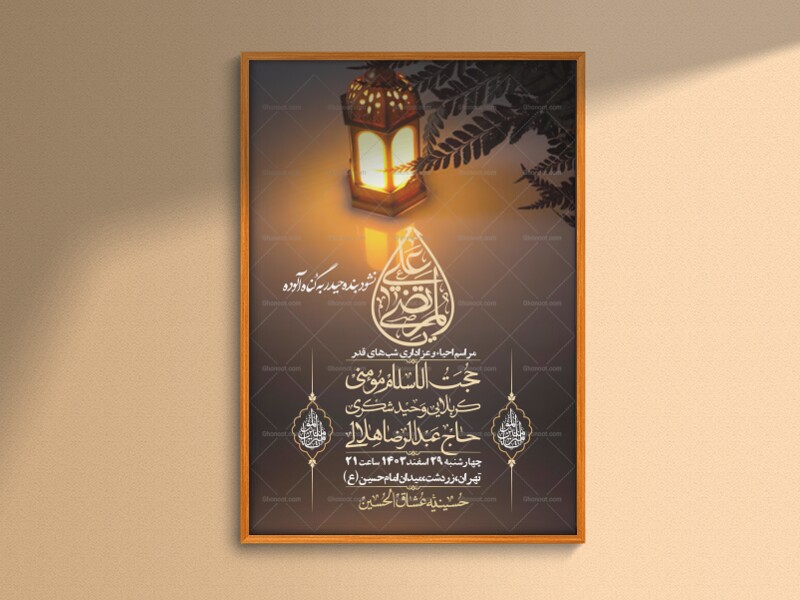 نشود بنده حیدر به گناه آلوده
علی المرتضی
مراسم احیاء و عزاداری شب‌های قدر
حجت الاسلام مومنی
کربلایی وحید شکری
حاج عبدالرضا هلالی
چهارشنبه ۲۹ اسفند ۱۴۰۳ ساعت ۲۱
تهران، زردشت، میدان امام حسین (ع)
حسینیه عشاق الحسین
Ghonoot.com